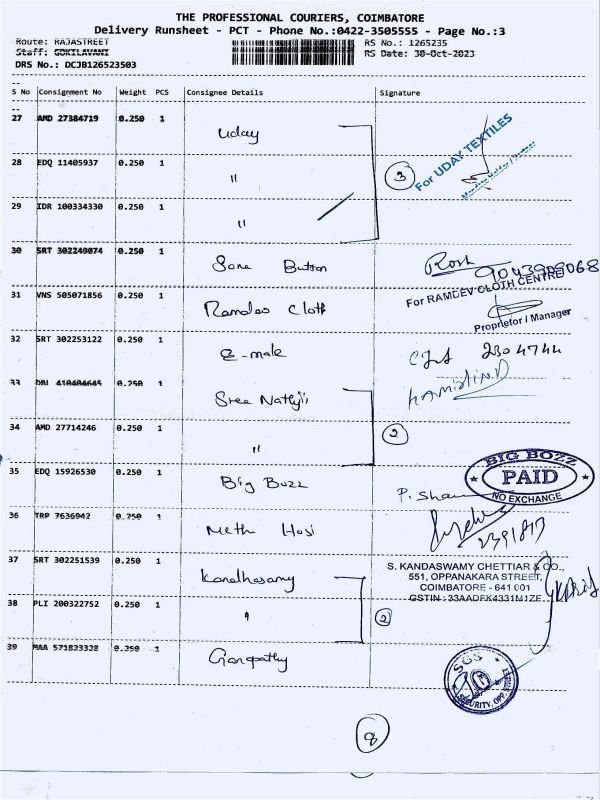 THE PROFESSIONAL COURIERS, COIMBATORE
Delivery Runsheet - PCT - Phone No.:0422-3505555 - Page No.:3
Route: RAJASTREET RS No.: 1265235
Staff: GOKILAVANI RS Date: 30-Oct-2023
DRS No.: DCJB126523503
S No Consignment No Weight PCS Consignee Details Signature
27 AMD 27384719 0.250 1 Uday
For UDAY TEXTILES
28 EDQ 11405937 0.250 1 "
3
29 IDR 100334330 0.250 1 "
30 SRT 302249074 0.250 1 Sona Button
31 VNS 505071856 0.250 1 Ramdeo Cloth
For RAMDEV CLOTH CENTRE
Proprietor / Manager
32 SRT 302253122 0.250 1 E-male 2304744
33 DBL 410404645 0.250 1 Sree Nathji
34 AMD 27714246 0.250 1 "
2
35 EDQ 15926530 0.250 1 Big Bozz P.
BIG BOZZ
PAID
NO EXCHANGE
36 TRP 7636942 0.250 1 Meth Hosi
37 SRT 302251539 0.250 1 Kandhasamy
S. KANDASWAMY CHETTIAR & CO.,
551, OPPANAKARA STREET,
COIMBATORE - 641 001
GSTIN : 33AADFK4331M1ZE
38 PLI 200322752 0.250 1 "
2
39 MAA 571823328 0.250 1 Ganapathy
SECURITY
8